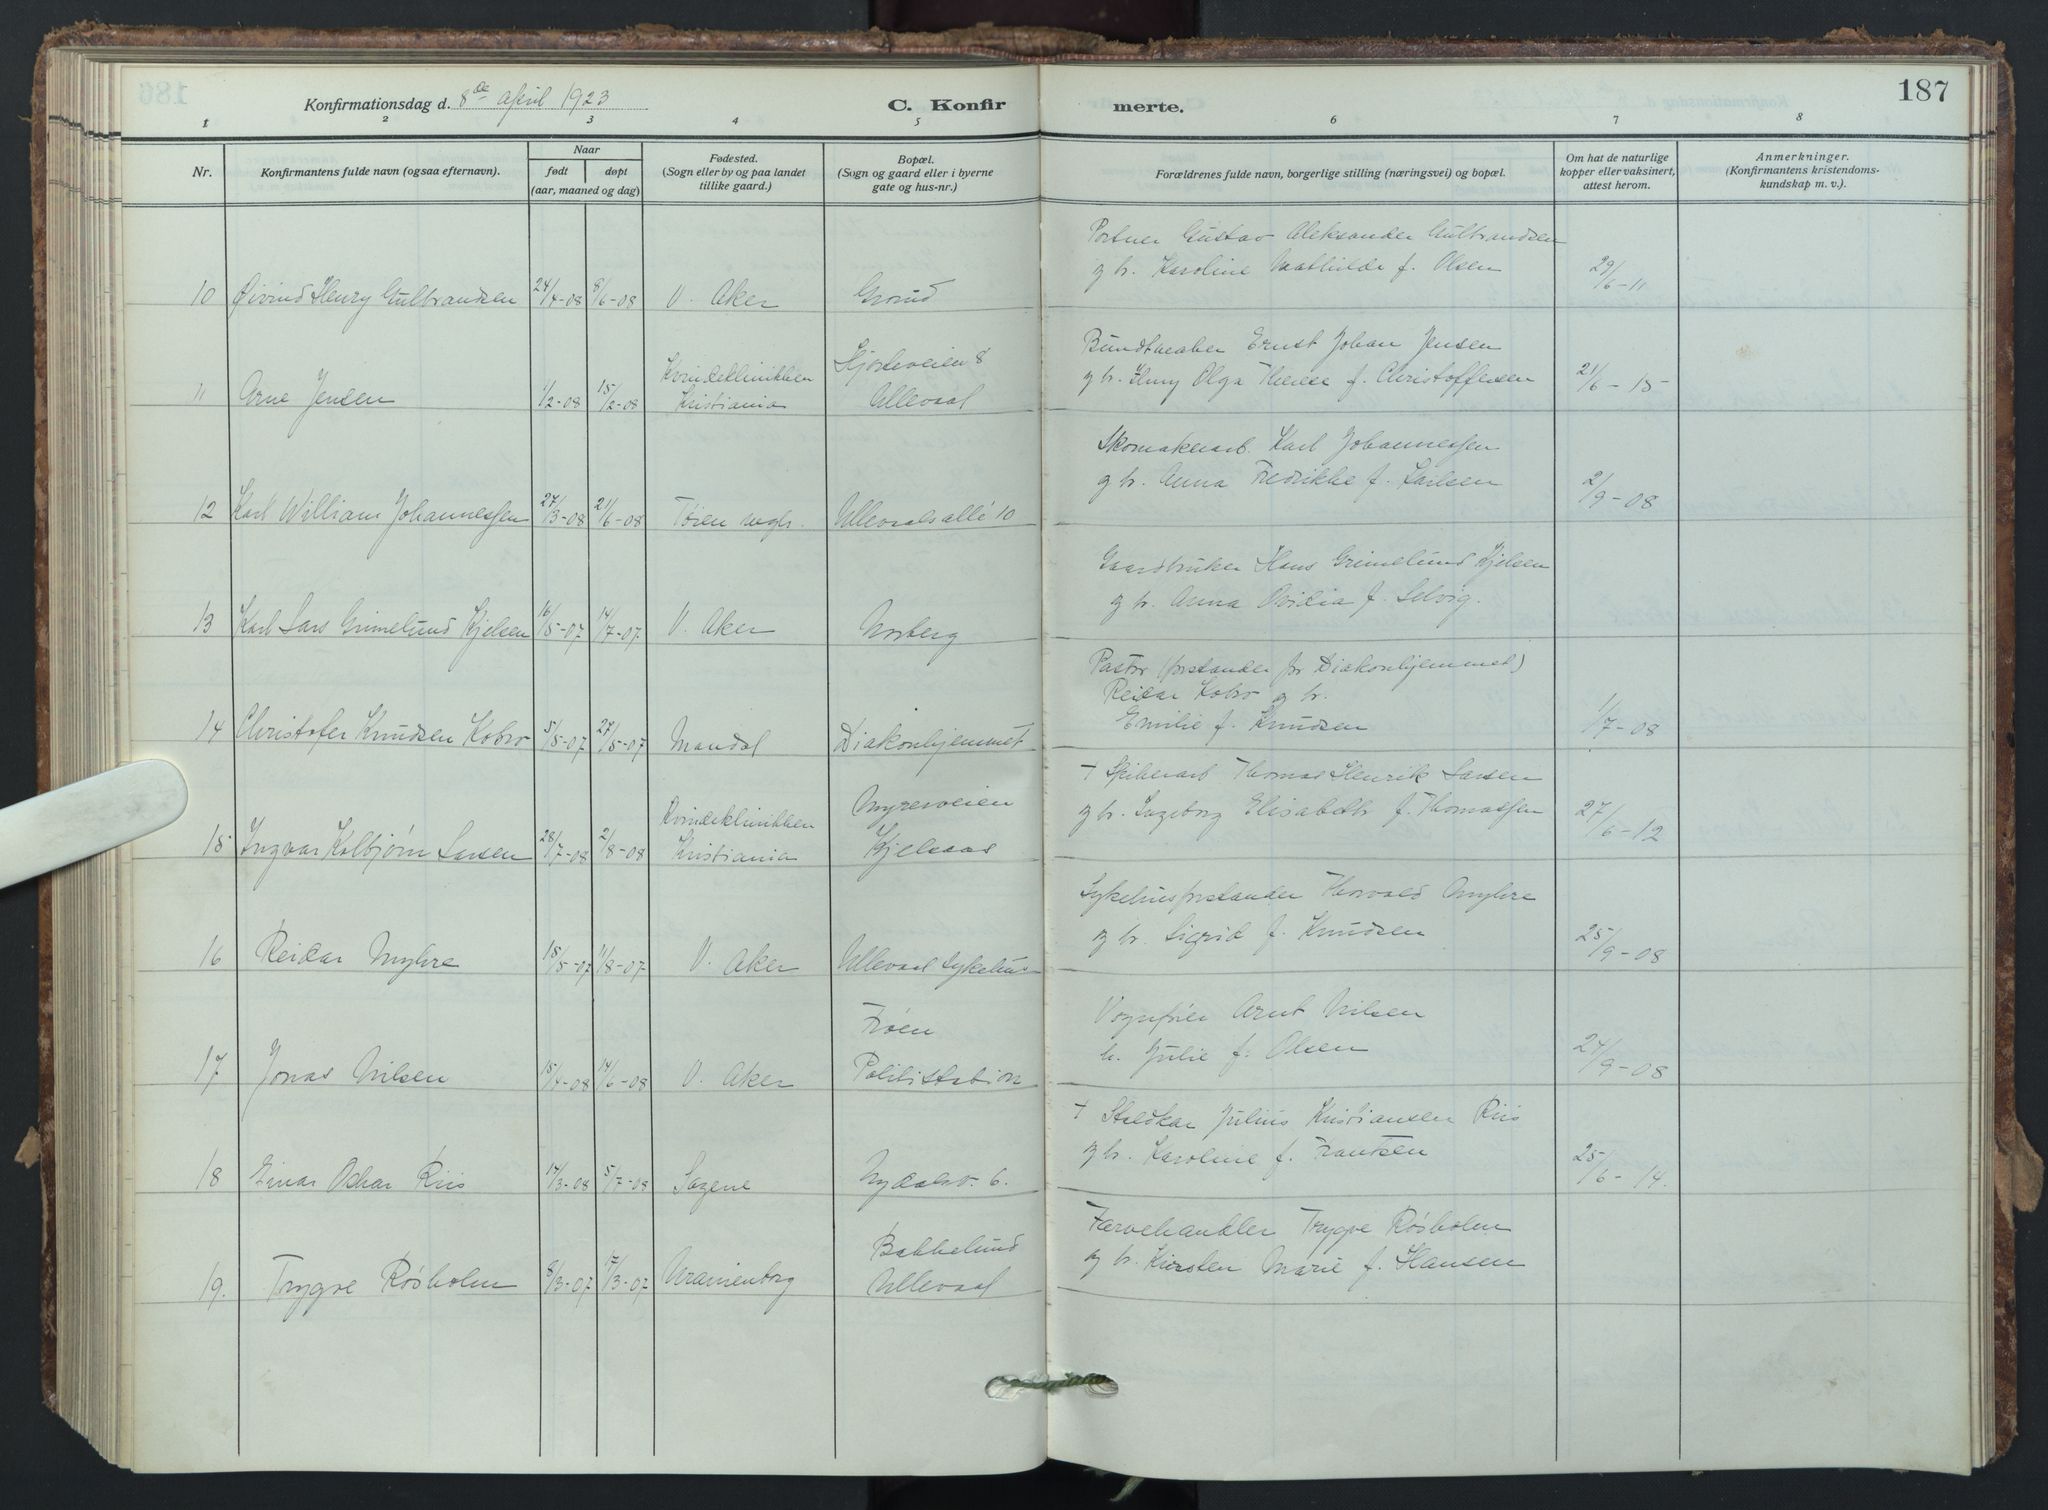 187
Konfirmationsdag d. 8de april 1923
C. Konfirmerte.
1 2 3 4 5 6 7 8
Nr.
Konfirmantens fulde navn (ogsaa efternavn).
Naar
født døpt
(aar, maaned og dag)
Fødested.
(Sogn eller by og paa landet
tillike gaard.)
Bopæl.
(Sogn og gaard eller i byerne
gate og hus-nr.)
Forældrenes fulde navn, borgerlige stilling (næringsvei) og bopæl.
Om hat de naturlige
kopper eller vaksinert,
attest herom.
Anmerkninger.
(Konfirmantens kristendoms-
kundskap m. v.).
Portner Gustav Aleksander Gulbrandsen
og h. Karoline Mathilde f. Olsen
10 Øivind Henry Gulbrandsen 24/4-08 8/6-08 V. Aker Grorud 29/6-11
Bundtmaker Ernst Johan Jensen
og h. Jenny Olga Therese f. Christoffersen
Kvindeklinikken Hjorteveien 8
11 Arne Jensen 1/2-08 15/2-08 Kristiania Ullevaal 21/6-15
Skomakerarb. Karl Johannessen
og h. Anna Fredrikke f. Karlsen
12 Karl William Johannessen 27/3-08 21/6-08 Tøien Ullevaalsallé 10 2/9-08
Gaardbruker Hans Grimelund Kjelsen
og h. Anna Ovidia f. Selvig.
13 Karl Lars Grimelund Kjelsen 16/5-07 14/7-07 V. Aker Norberg
Pastor (forstander for Diakonhjemmet)
Reidar Kobro og h.
Emilie f. Knudsen
14 Christofer Knudsen Kobro 5/5-07 27/5-07 Mandal Diakonhjemmet 1/7-08
+ Spikerarb Thomas Henrik Larsen
og h. Ingeborg Elisabeth f. Thomassen
Kvindeklinikken Myrerveien
15 Ingvar Kolbjørn Larsen 28/7-08 2/8-08 Kristiania Kjelsaas 27/6-12
Sykehusforstander Thorvald Myhre
og h. Sigrid f. Knudsen
16 Reidar Myhre 15/5-07 11/8-07 V. Aker Ullevaal Sykehus 25/9-08
Vognfører Arnt Nilsen
h. Julie f. Olsen
Frøen
17 Jonas Nilsen 15/4-08 14/6-08 V. Aker Politistation 24/9-08
+ Staldkar Julius Kristiansen Riis
og h. Karoline f. Frantsen
18 Einar Oskar Riis 14/3-08 5/7-08 Sagene Nydalsv. 6. 25/6-14.
Farvehandler Trygve Røsholm
og h. Kirsten Marie f. Hansen
Bakkelund
19. Trygve Røsholm 8/3-07 17/3-07 Uranienborg Ullevaal